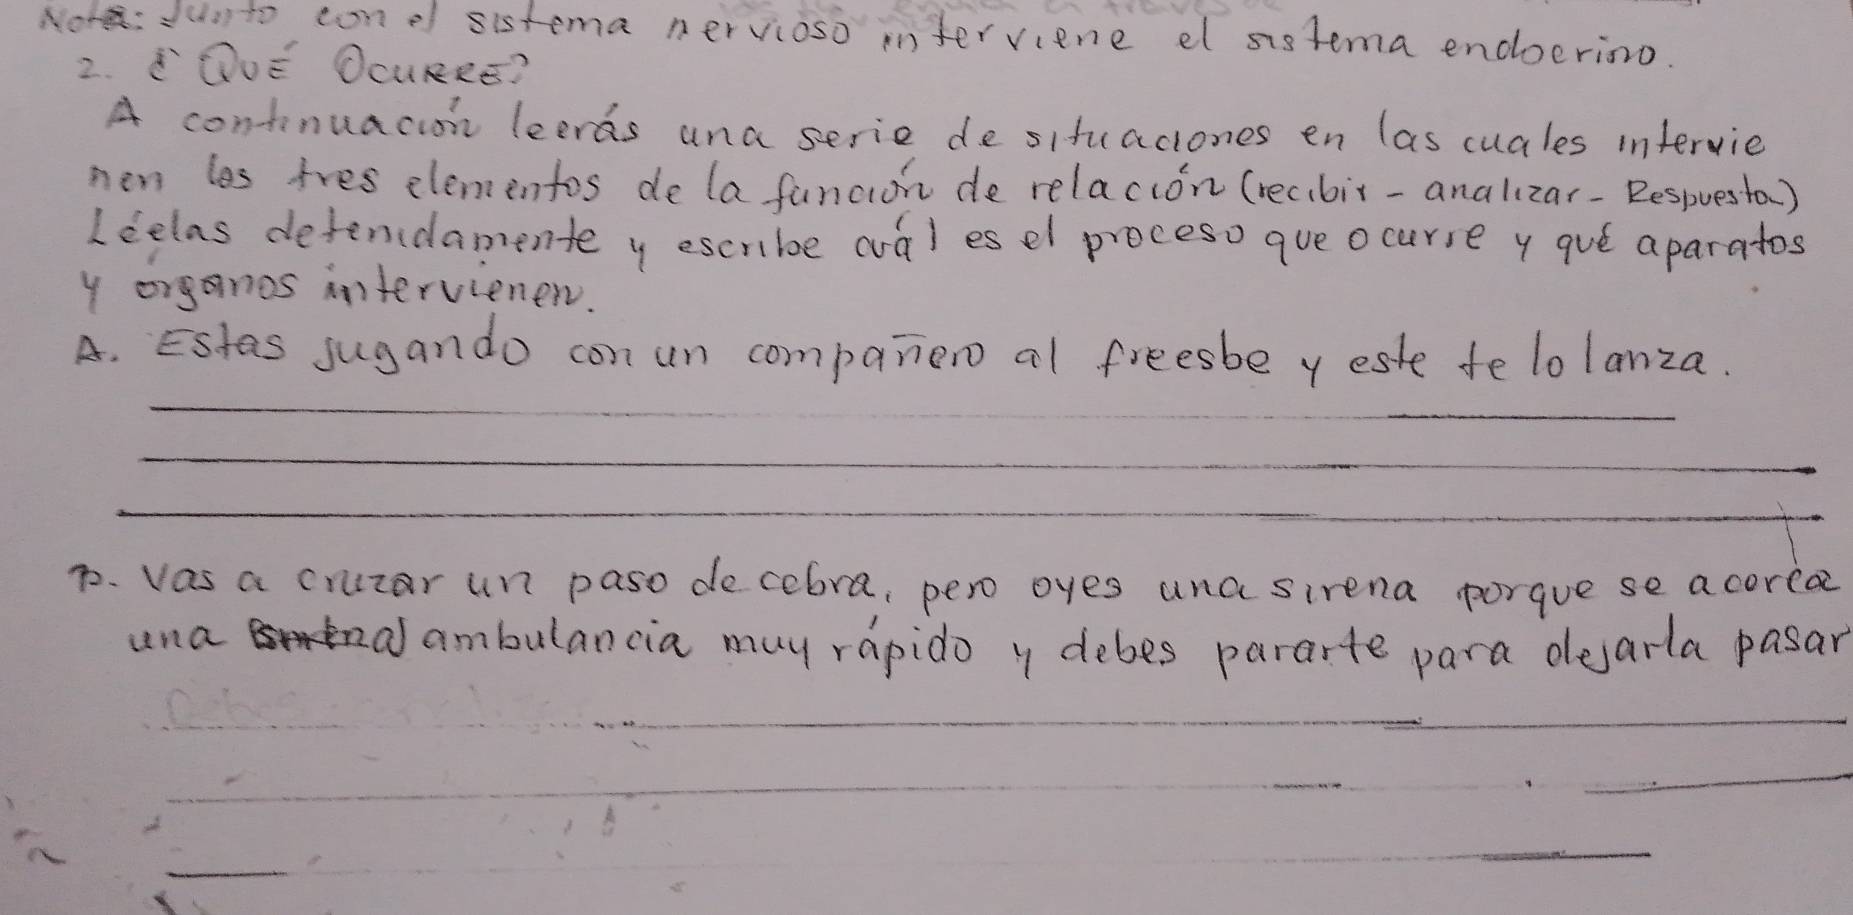 Nota: Junto con el sistema nervioso interviene el sistema endocrino.
2. ¿QUÉ OCURRE?
A continuación leerás una serie de situaciones en las cuales intervie
nen los tres elementos de la función de relación (recibir - analizar - Respuesta)
Léelas detenidamente y escribe cuál es el proceso que ocurre y qué aparatos
y órganos intervienen.
A. Estas jugando con un compañero al freesbe y este te lo lanza.
B. Vas a cruzar un paso de cebra, pero oyes una sirena porque se acerca
una ambulancia muy rápido y debes pararte para dejarla pasar